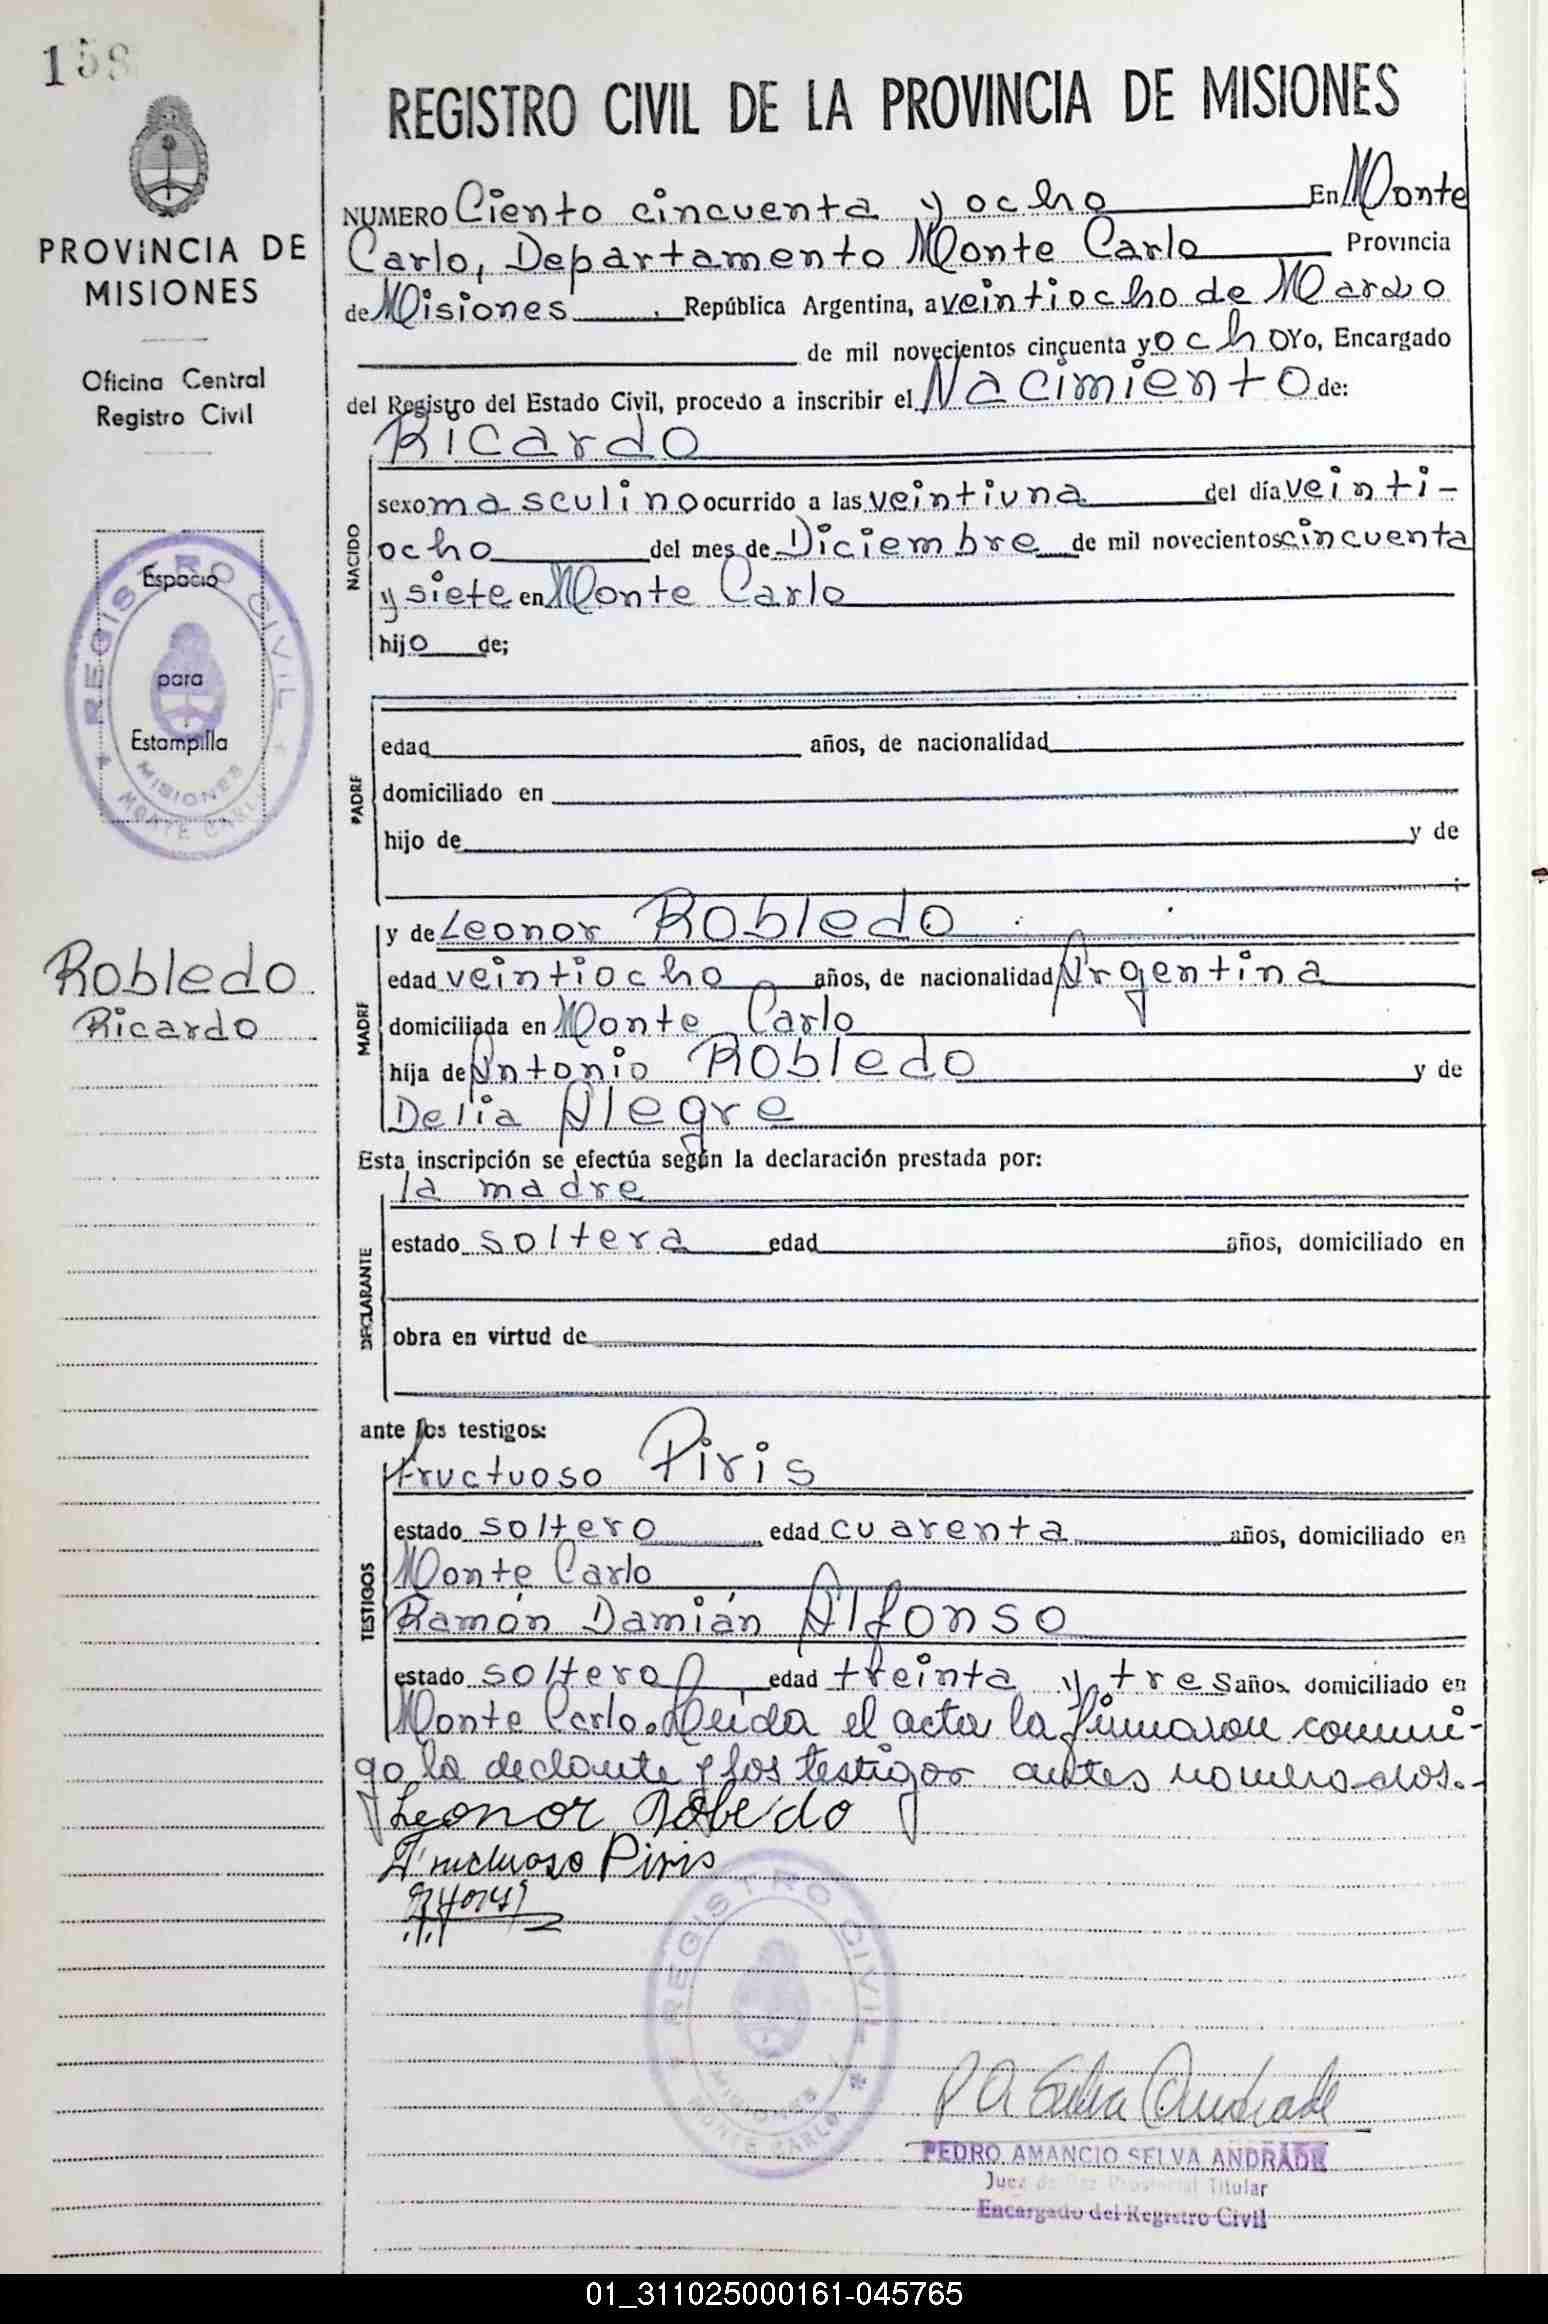 158
REGISTRO CIVIL DE LA PROVINCIA DE MISIONES
PROVINCIA DE
MISIONES
Oficina Central
Registro Civil
REGISTRO CIVIL
Espacio
para
Estampilla
MISIONES
MONTE CARLO
Robledo
Ricardo
NUMERO Ciento cincuenta y ocho En Monte
Carlo, Departamento Monte Carlo Provincia
de Misiones, República Argentina, a veintiocho de Marzo
de mil novecientos cincuenta y ocho Yo, Encargado
del Registro del Estado Civil, procedo a inscribir el Nacimiento de:
NACIDO
Ricardo
sexo masculino ocurrido a las veintiuna del día veinti-
ocho del mes de Diciembre de mil novecientos cincuenta
y siete en Monte Carlo
hijo de;
PADRE
edad años, de nacionalidad
domiciliado en
hijo de y de
MADRE
y de Leonor Robledo
edad veintiocho años, de nacionalidad Argentina
domiciliada en Monte Carlo
hija de Antonio Robledo y de
Delia Alegre
Esta inscripción se efectúa según la declaración prestada por:
DECLARANTE
la madre
estado soltera edad años, domiciliado en
obra en virtud de
ante los testigos:
TESTIGOS
Fructuoso Piris
estado soltero edad cuarenta años, domiciliado en
Monte Carlo
Ramón Damián Alfonso
estado soltero edad treinta y tres años domiciliado en
Monte Carlo. Leida el acta la firmaron conmi-
go la declante y los testigos antes nomerados.-
Leonor Robledo
Fructuoso Piris
REGISTRO CIVIL
MISIONES
MONTE CARLO
P A Selva Andrade
PEDRO AMANCIO SELVA ANDRADE
Juez de Paz Provincial Titular
Encargado del Registro Civil
01_311025000161-045765